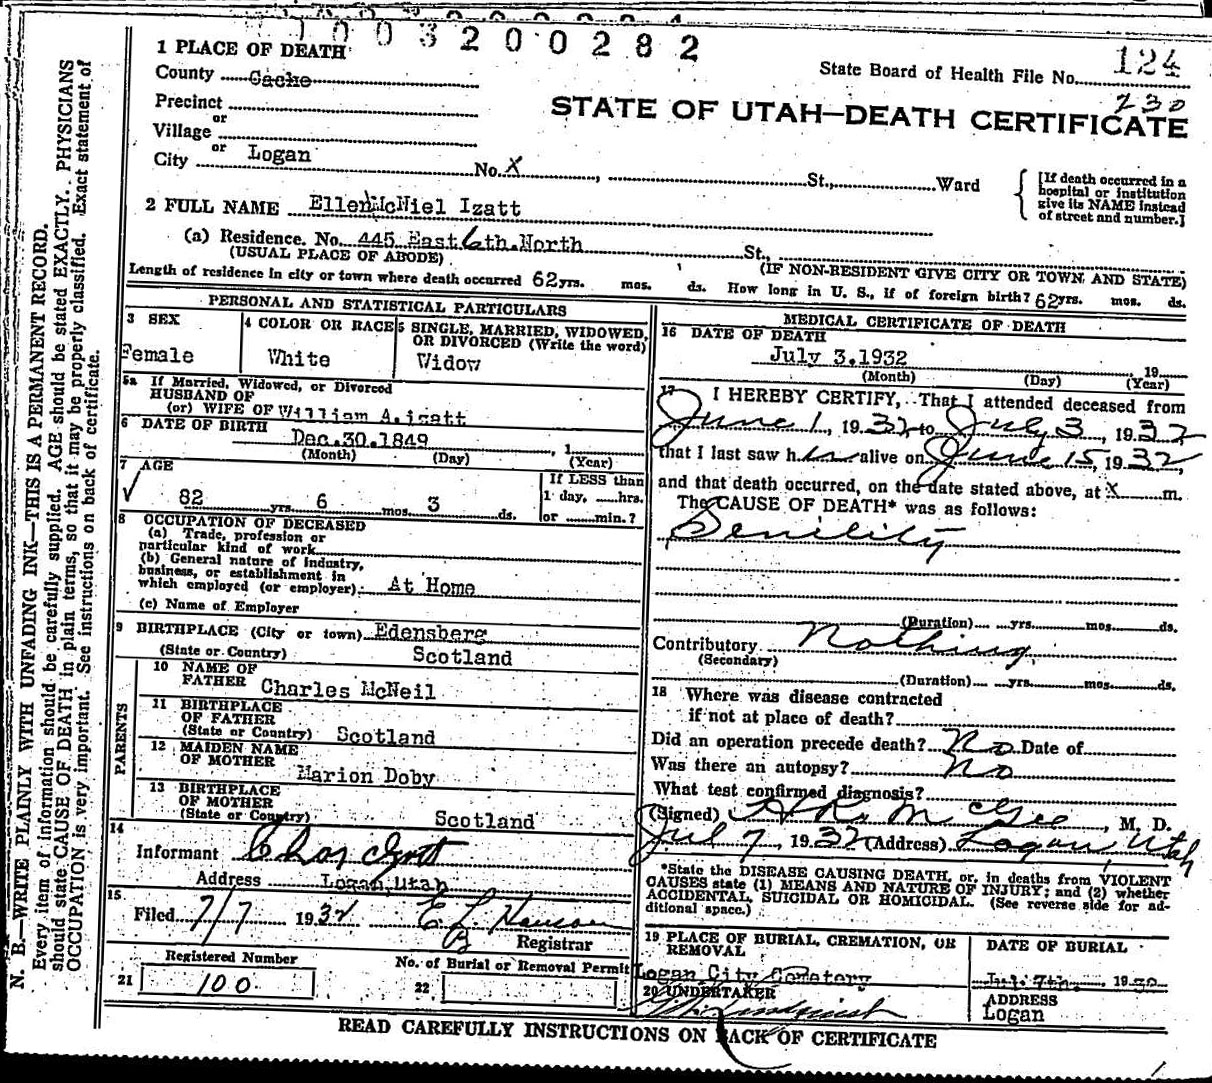 1003200282
124
State Board of Health File No.
230
STATE OF UTAH—DEATH CERTIFICATE
1 PLACE OF DEATH
County Cache
Precinct
or
Village
or
City Logan No. X, St., Ward
[If death occurred in a hospital or institution give its NAME instead of street and number.]
2 FULL NAME Ellen McNiel Izatt
(a) Residence. No. 445 East 6th. North St.,
(USUAL PLACE OF ABODE) (IF NON-RESIDENT GIVE CITY OR TOWN AND STATE)
Length of residence in city or town where death occurred 62 yrs. mos. ds. How long in U. S., if of foreign birth? 62 yrs. mos. ds.
PERSONAL AND STATISTICAL PARTICULARS
3 SEX
Female
4 COLOR OR RACE
White
5 SINGLE, MARRIED, WIDOWED, OR DIVORCED (Write the word)
Widow
5a If Married, Widowed, or Divorced
HUSBAND OF
(or) WIFE OF William A. izatt
6 DATE OF BIRTH
Dec. 30. 1849, 1
(Month) (Day) (Year)
7 AGE
82 yrs. 6 mos. 3 ds.
If LESS than
1 day, hrs.
or min.?
8 OCCUPATION OF DECEASED
(a) Trade, profession or
particular kind of work
(b) General nature of industry,
business, or establishment in
which employed (or employer) At Home
(c) Name of Employer
9 BIRTHPLACE (City or town) Edensberg
(State or Country) Scotland
PARENTS
10 NAME OF
FATHER Charles McNeil
11 BIRTHPLACE
OF FATHER
(State or Country) Scotland
12 MAIDEN NAME
OF MOTHER
Marion Doby
13 BIRTHPLACE
OF MOTHER
(State or Country) Scotland
14
Informant Chas Izatt
Address Logan, Utah
15
Filed 7/7 1932
Registrar
Registered Number
21 100
No. of Burial or Removal Permit
22
MEDICAL CERTIFICATE OF DEATH
16 DATE OF DEATH
July 3. 1932 19
(Month) (Day) (Year)
17 I HEREBY CERTIFY, That I attended deceased from
June 1, 1932 to July 3, 1932
that I last saw her alive on June 15, 1932,
and that death occurred, on the date stated above, at X m.
The CAUSE OF DEATH* was as follows:
Senility
(Duration) yrs. mos. ds.
Contributory Nothing
(Secondary)
(Duration) yrs. mos. ds.
18 Where was disease contracted
if not at place of death?
Did an operation precede death? No Date of
Was there an autopsy? No
What test confirmed diagnosis?
(Signed) McGee, M. D.
Jul 7, 1932 (Address) Logan, Utah
*State the DISEASE CAUSING DEATH, or, in deaths from VIOLENT
CAUSES state (1) MEANS AND NATURE OF INJURY; and (2) whether
ACCIDENTAL, SUICIDAL OR HOMICIDAL. (See reverse side for ad-
ditional space.)
19 PLACE OF BURIAL, CREMATION, OR
REMOVAL
Logan City Cemetery
DATE OF BURIAL
Jul. 7th, 19
20 UNDERTAKER
ADDRESS
Logan
READ CAREFULLY INSTRUCTIONS ON BACK OF CERTIFICATE
N. B.—WRITE PLAINLY WITH UNFADING INK—THIS IS A PERMANENT RECORD.
Every item of information should be carefully supplied. AGE should be stated EXACTLY. PHYSICIANS
should state CAUSE OF DEATH in plain terms, so that it may be properly classified. Exact statement of
OCCUPATION is very important. See instructions on back of certificate.